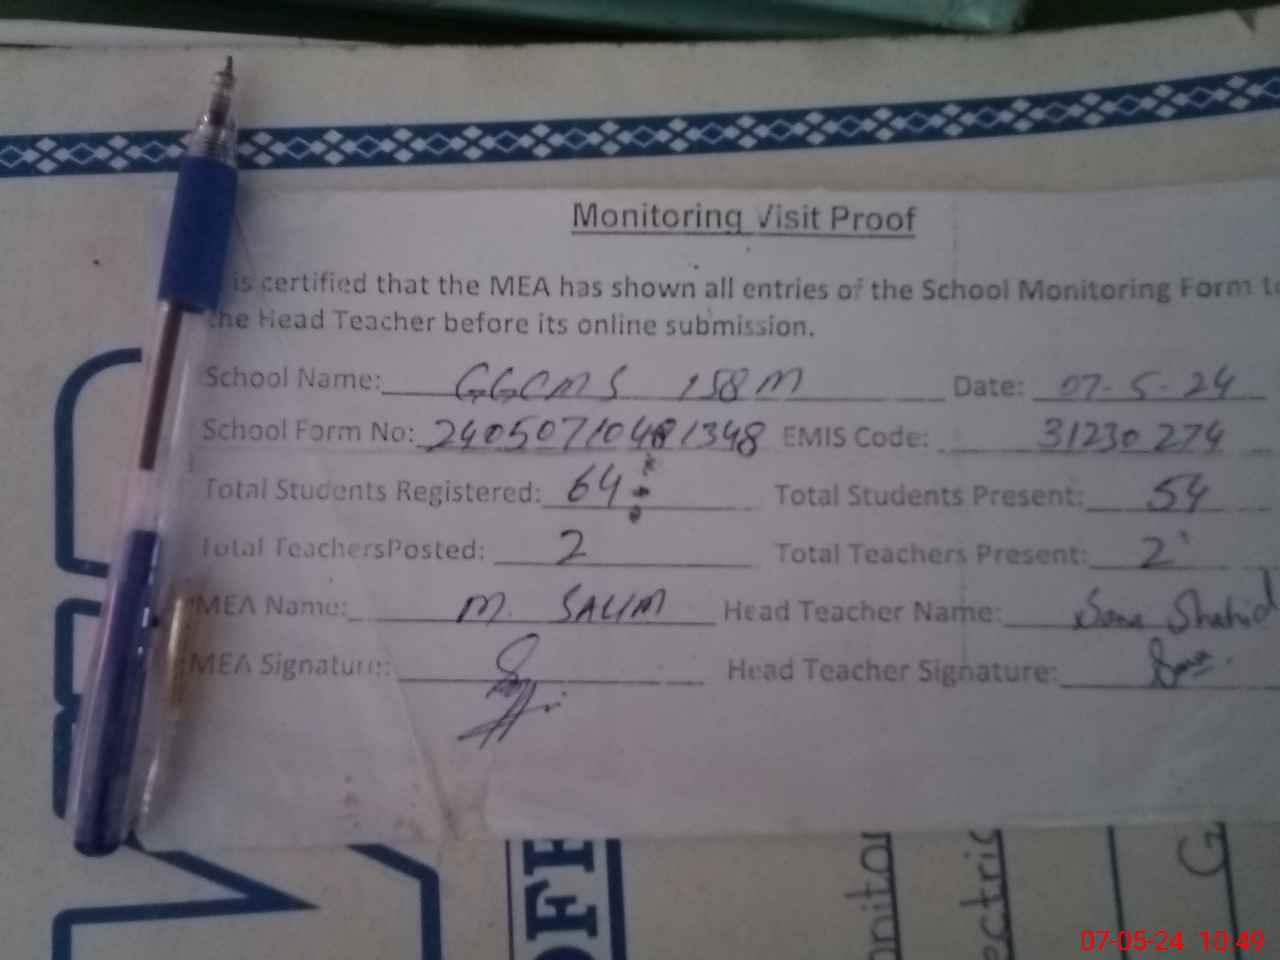 Monitoring Visit Proof
is certified that the MEA has shown all entries of the School Monitoring Form to
the Head Teacher before its online submission.
School Name: GGCMS 158M Date: 07-5-24
School Form No: 24050710481348 EMIS Code: 31230274
Total Students Registered: 64 Total Students Present: 54
Total TeachersPosted: 2 Total Teachers Present: 2
MEA Name: M. SALIM Head Teacher Name: Sana Shahid
MEA Signature: Head Teacher Signature: Sana
OFF
onitor
ectric
G
07-05-24 10:49